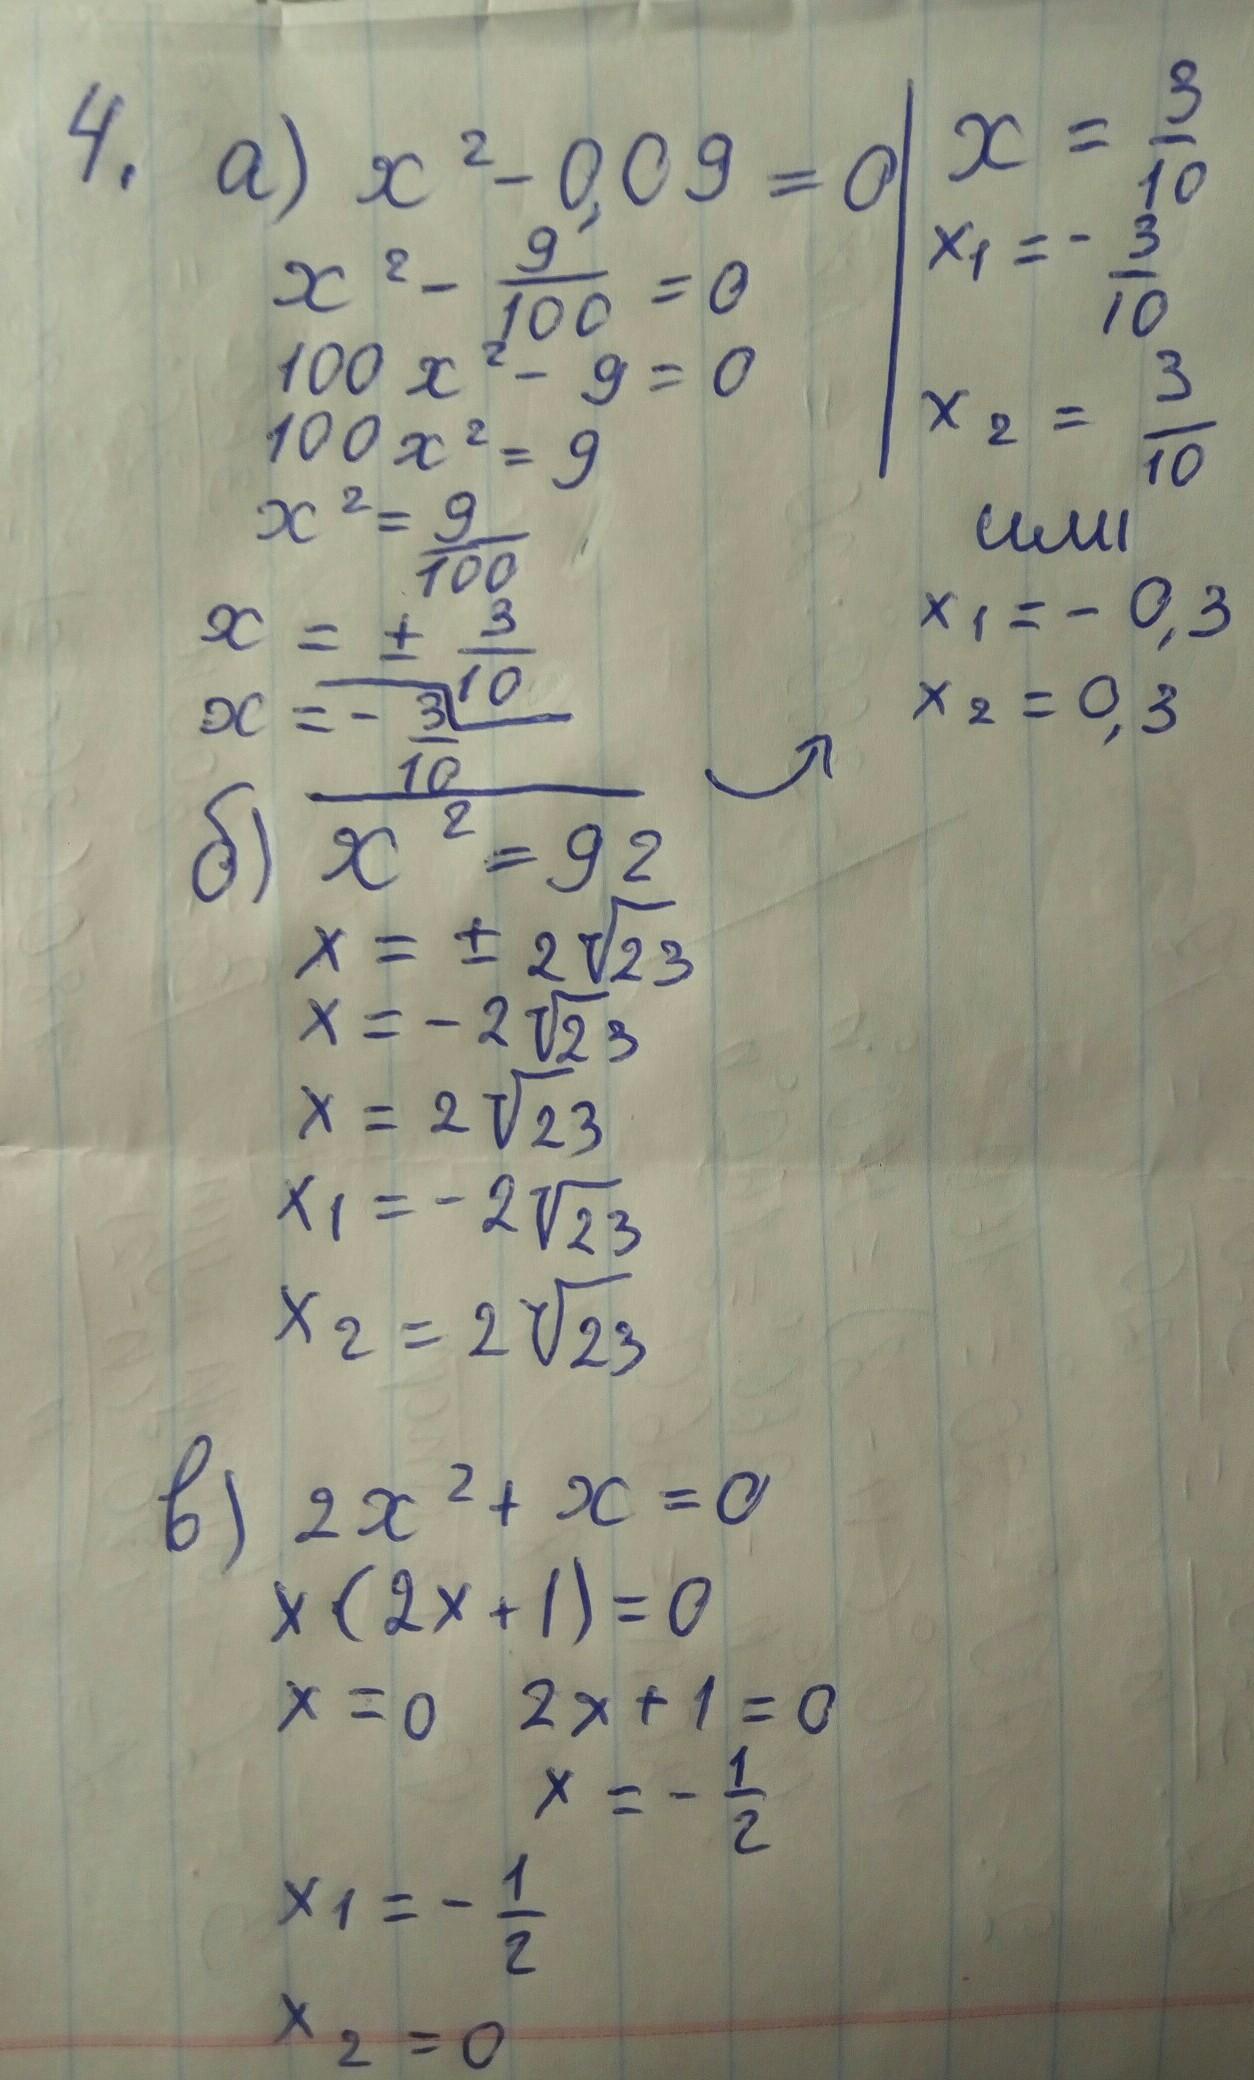 4. а) x² - 0,09 = 0
x² - 9/100 = 0
100x² - 9 = 0
100x² = 9
x² = 9/100
x = ± 3/10
x = - 3/10
x = 3/10
x₁ = - 3/10
x₂ = 3/10
или
x₁ = - 0,3
x₂ = 0,3
б) x² = 92
x = ± 2√23
x = - 2√23
x = 2√23
x₁ = - 2√23
x₂ = 2√23
в) 2x² + x = 0
x(2x + 1) = 0
x = 0 2x + 1 = 0
x = - 1/2
x₁ = - 1/2
x₂ = 0